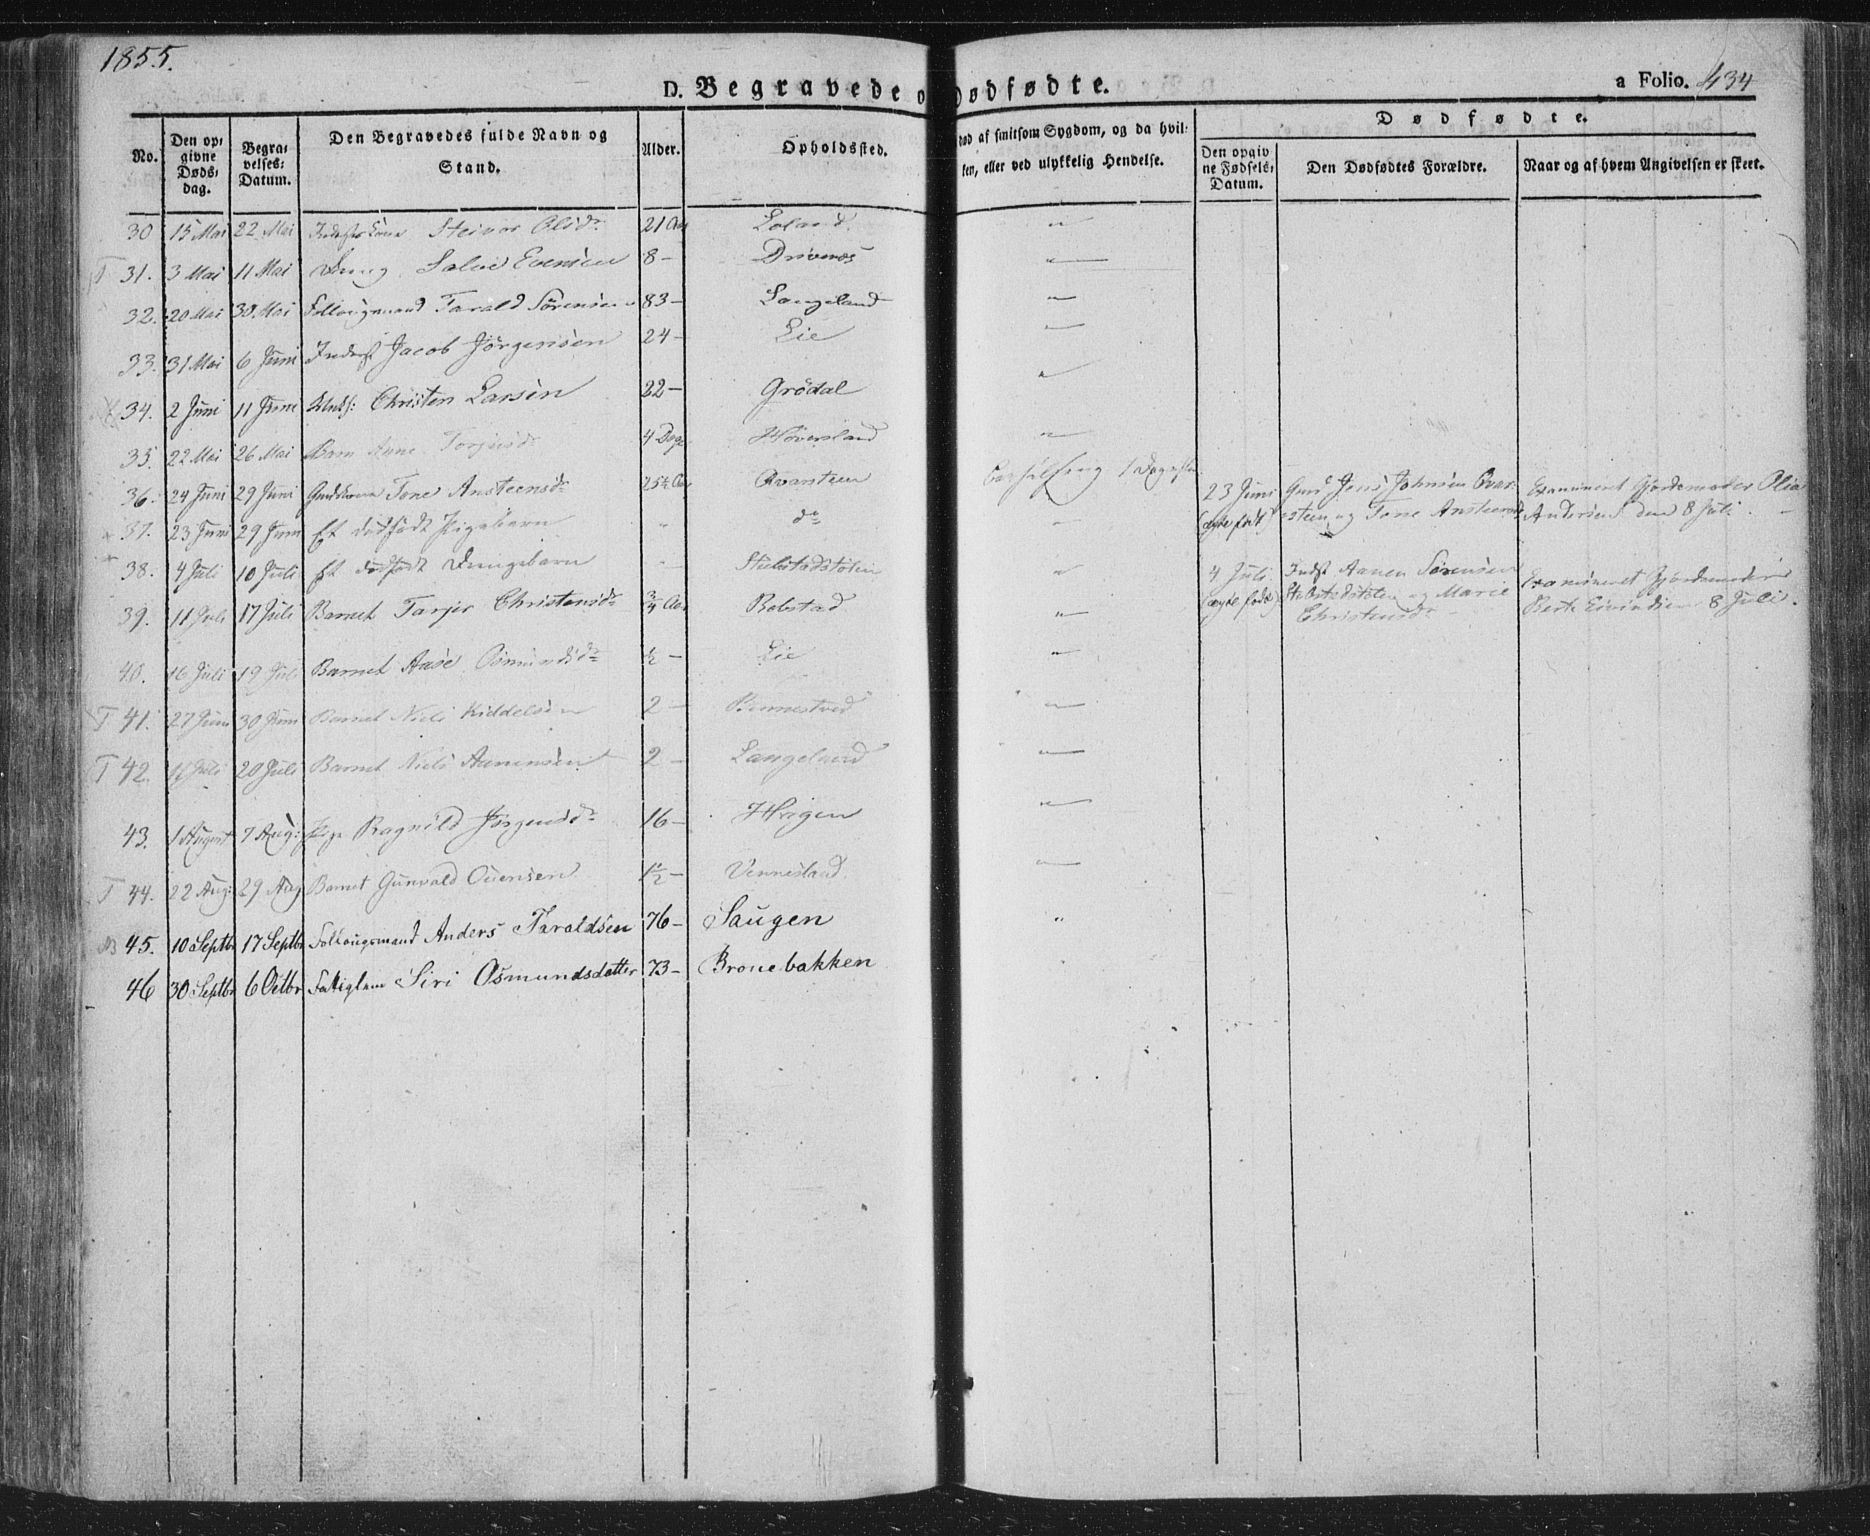 1855.
D. Begravede o
Dødfødte.
a Folio. 434
No.
Den op-
givne
Døds-
dag.
Begra-
velses-
Datum.
Den Begravedes fulde Navn og
Stand.
Alder.
Opholdssted.
Død af smitsom Sygdom, og da hvil-
ken, eller ved ulykkelig Hendelse.
Dødfødte.
Den opgiv
ne Fødsels-
Datum.
Den Dødfødtes Forældre.
Naar og af hvem Angivelsen er skeet.
30 15 Mai 22 Mai Steivor Olsdr 21 Aar Loland "
T 31. 3 Mai 11 Mai Dreng Salve Evensen 8 - Drivenes "
32. 20 Mai 30 Mai Follougsmand Tarald Sörensen 83 - Langeland "
33. 31 Mai 6 Juni Inderst Jacob Jörgensen 24 - Lie "
34. 2 Juni 11 Juni Christen Larsen 22 - Grödal "
35. 22 Mai 26 Mai Barn Anne Torjusdr 4 Dage Höversland "
36. 24 Juni 29 Juni Gmdskone Tone Ansteensdr 25½ Aar Qvarsteen Barselseng 1 Dag
37. 23 Juni 29 Juni Et dödfödt Pigebarn " do "
23 Juni Gmd Jens Johnsen Qvar- Examineret Gjordemoder Olia
(ægte födt) steen og Tone Ansteensdr Andersens den 8 Juli. -
38. 4 Juli 10 Juli Et dödfödt Drengebarn - Stulstadstölen "
4 Juli Indst Aanen Sörensen Examineret Gjordemoder
(ægte födt) Stulstedstölen og Marie Berte Eivindsen 8 Juli.
Christensdr
39. 11 Juli 17 Juli Barnet Tarjer Christensdr ¾ Aar Robstad "
40. 16 Juli 19 Juli Barnet Aase Osmundsdr ½ - Lie "
T 41. 27 Juni 30 Juni Barnet Niels Kiddelsen 2 - "
T 42. 20 Juli Barnet Niels Aanensen 2 - Langeland "
43. 1 August 7 Aug: Pige Ragnild Jörgensdr 16 - Hægen "
T 44. 22 Aug: 29 Aug Barnet Gunvald Ouensen 1½ - Vennesland "
45. 10 Septbr 17 Septbr Follougsmand Anders Taraldsen 76 - Saugen "
46 30 Septbr 6 Octbr Fattiglem Siri Osmundsdatter 73 - Bronebakken